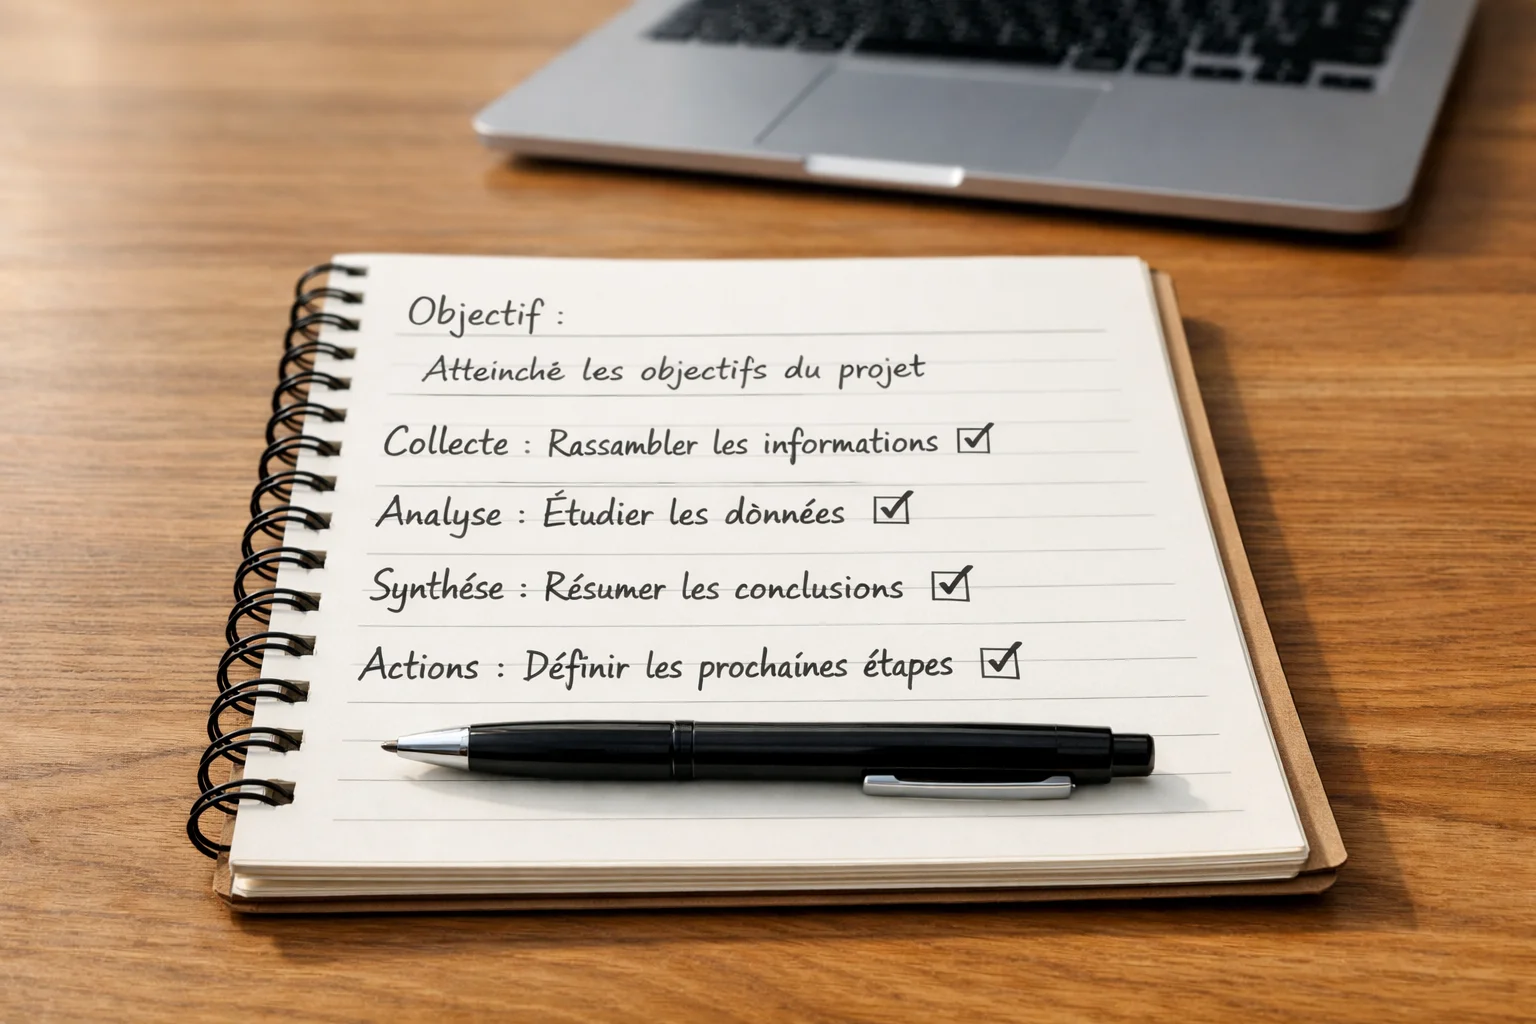 Objectif :
Atteinché les objectifs du projet
Collecte : Rassambler les informations ☑
Analyse : Étudier les dònnées ☑
Synthése : Résumer les conclusions ☑
Actions : Définir les prochaínes étapes ☑